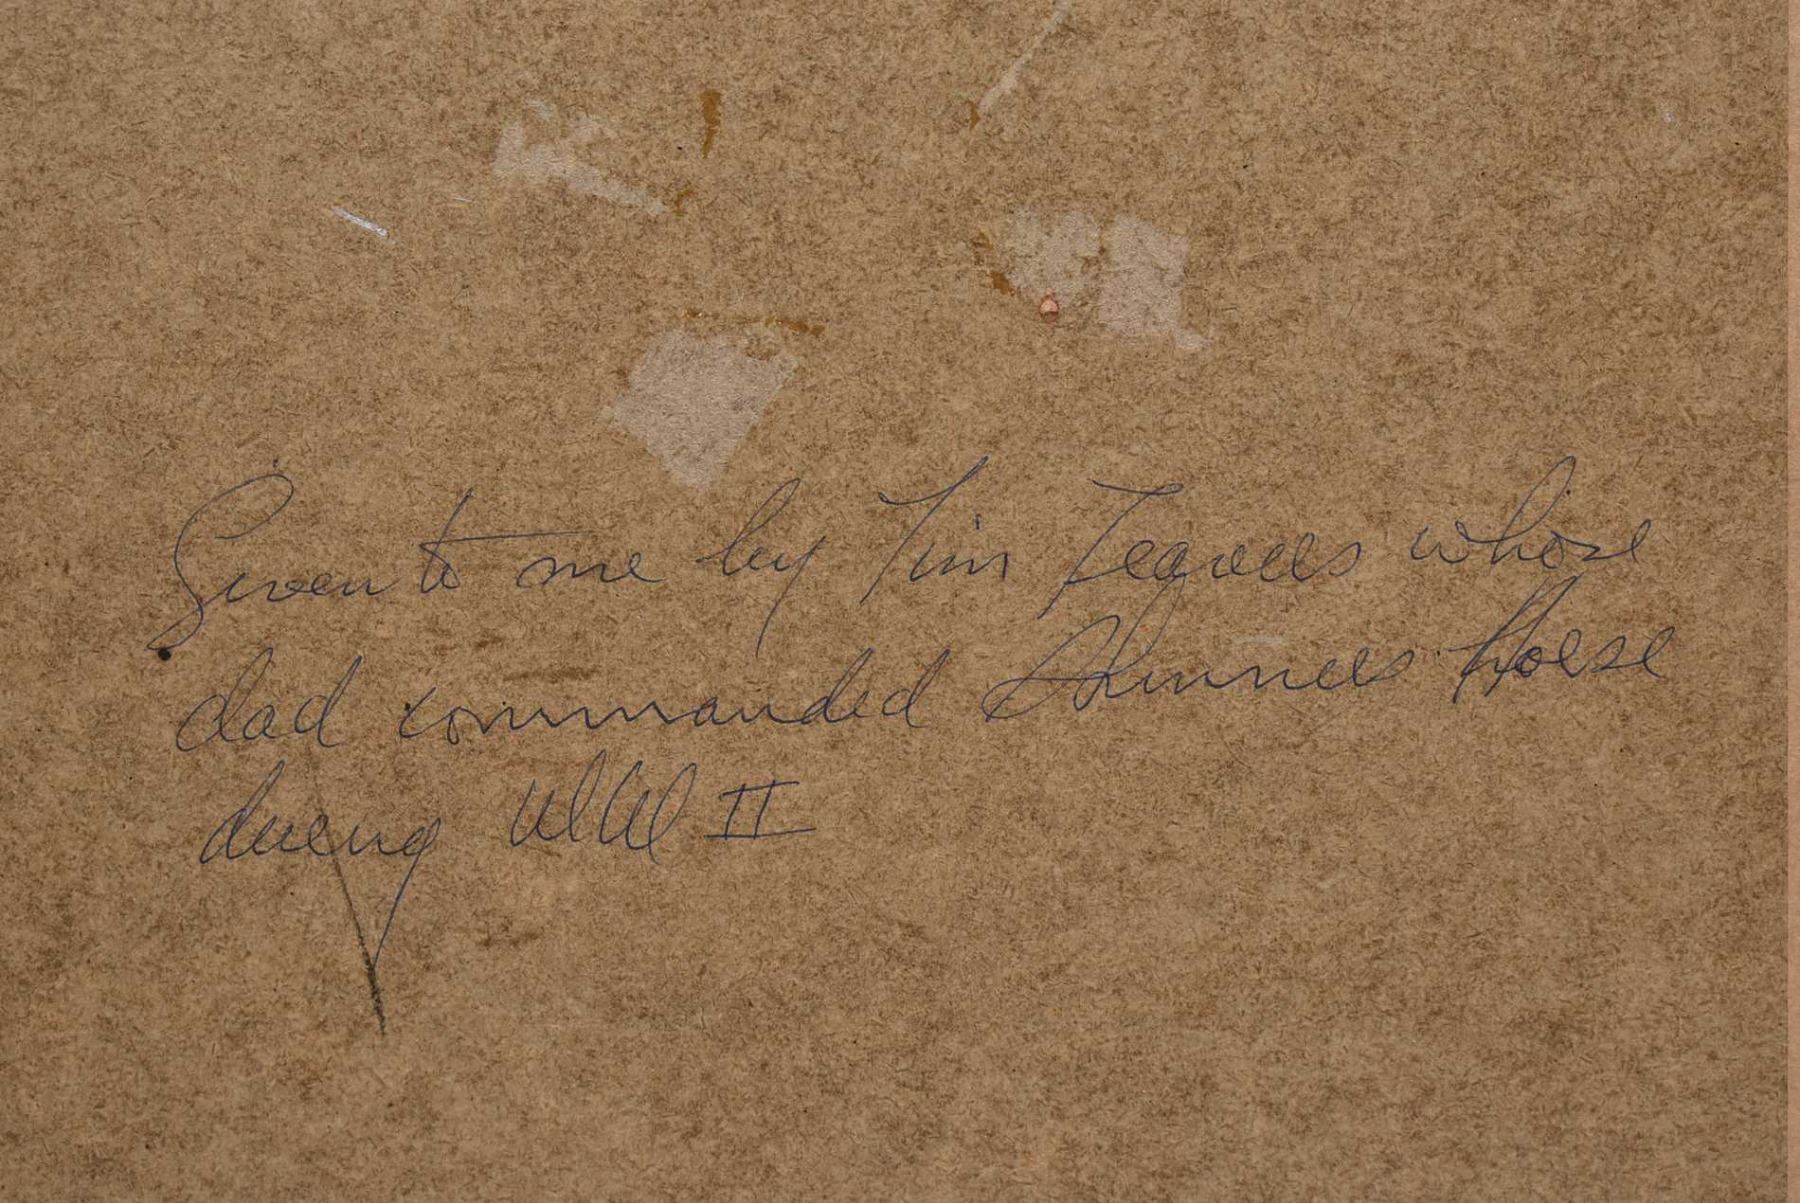 Given to me by Tim Legrees whose
dad commanded Skinners Horse
during WW II